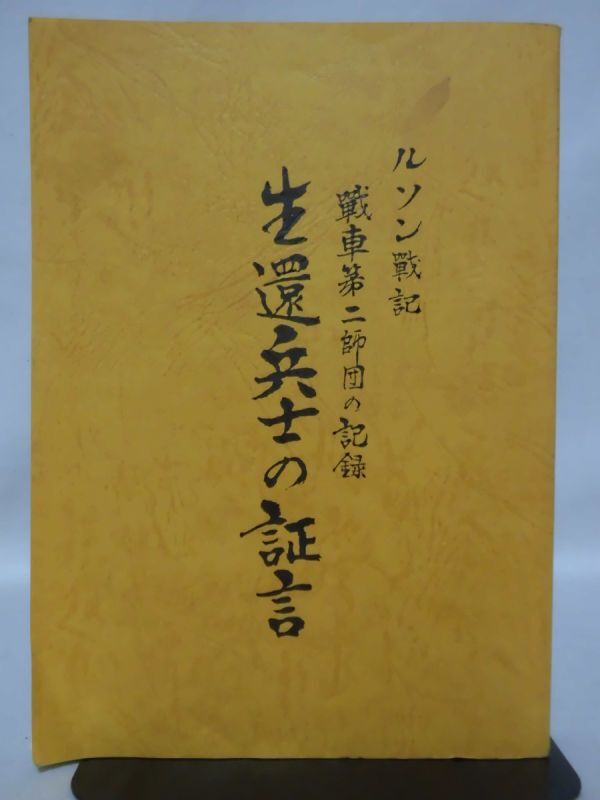 ルソン戰記
戰車第二師団の記録
生還兵士の証言